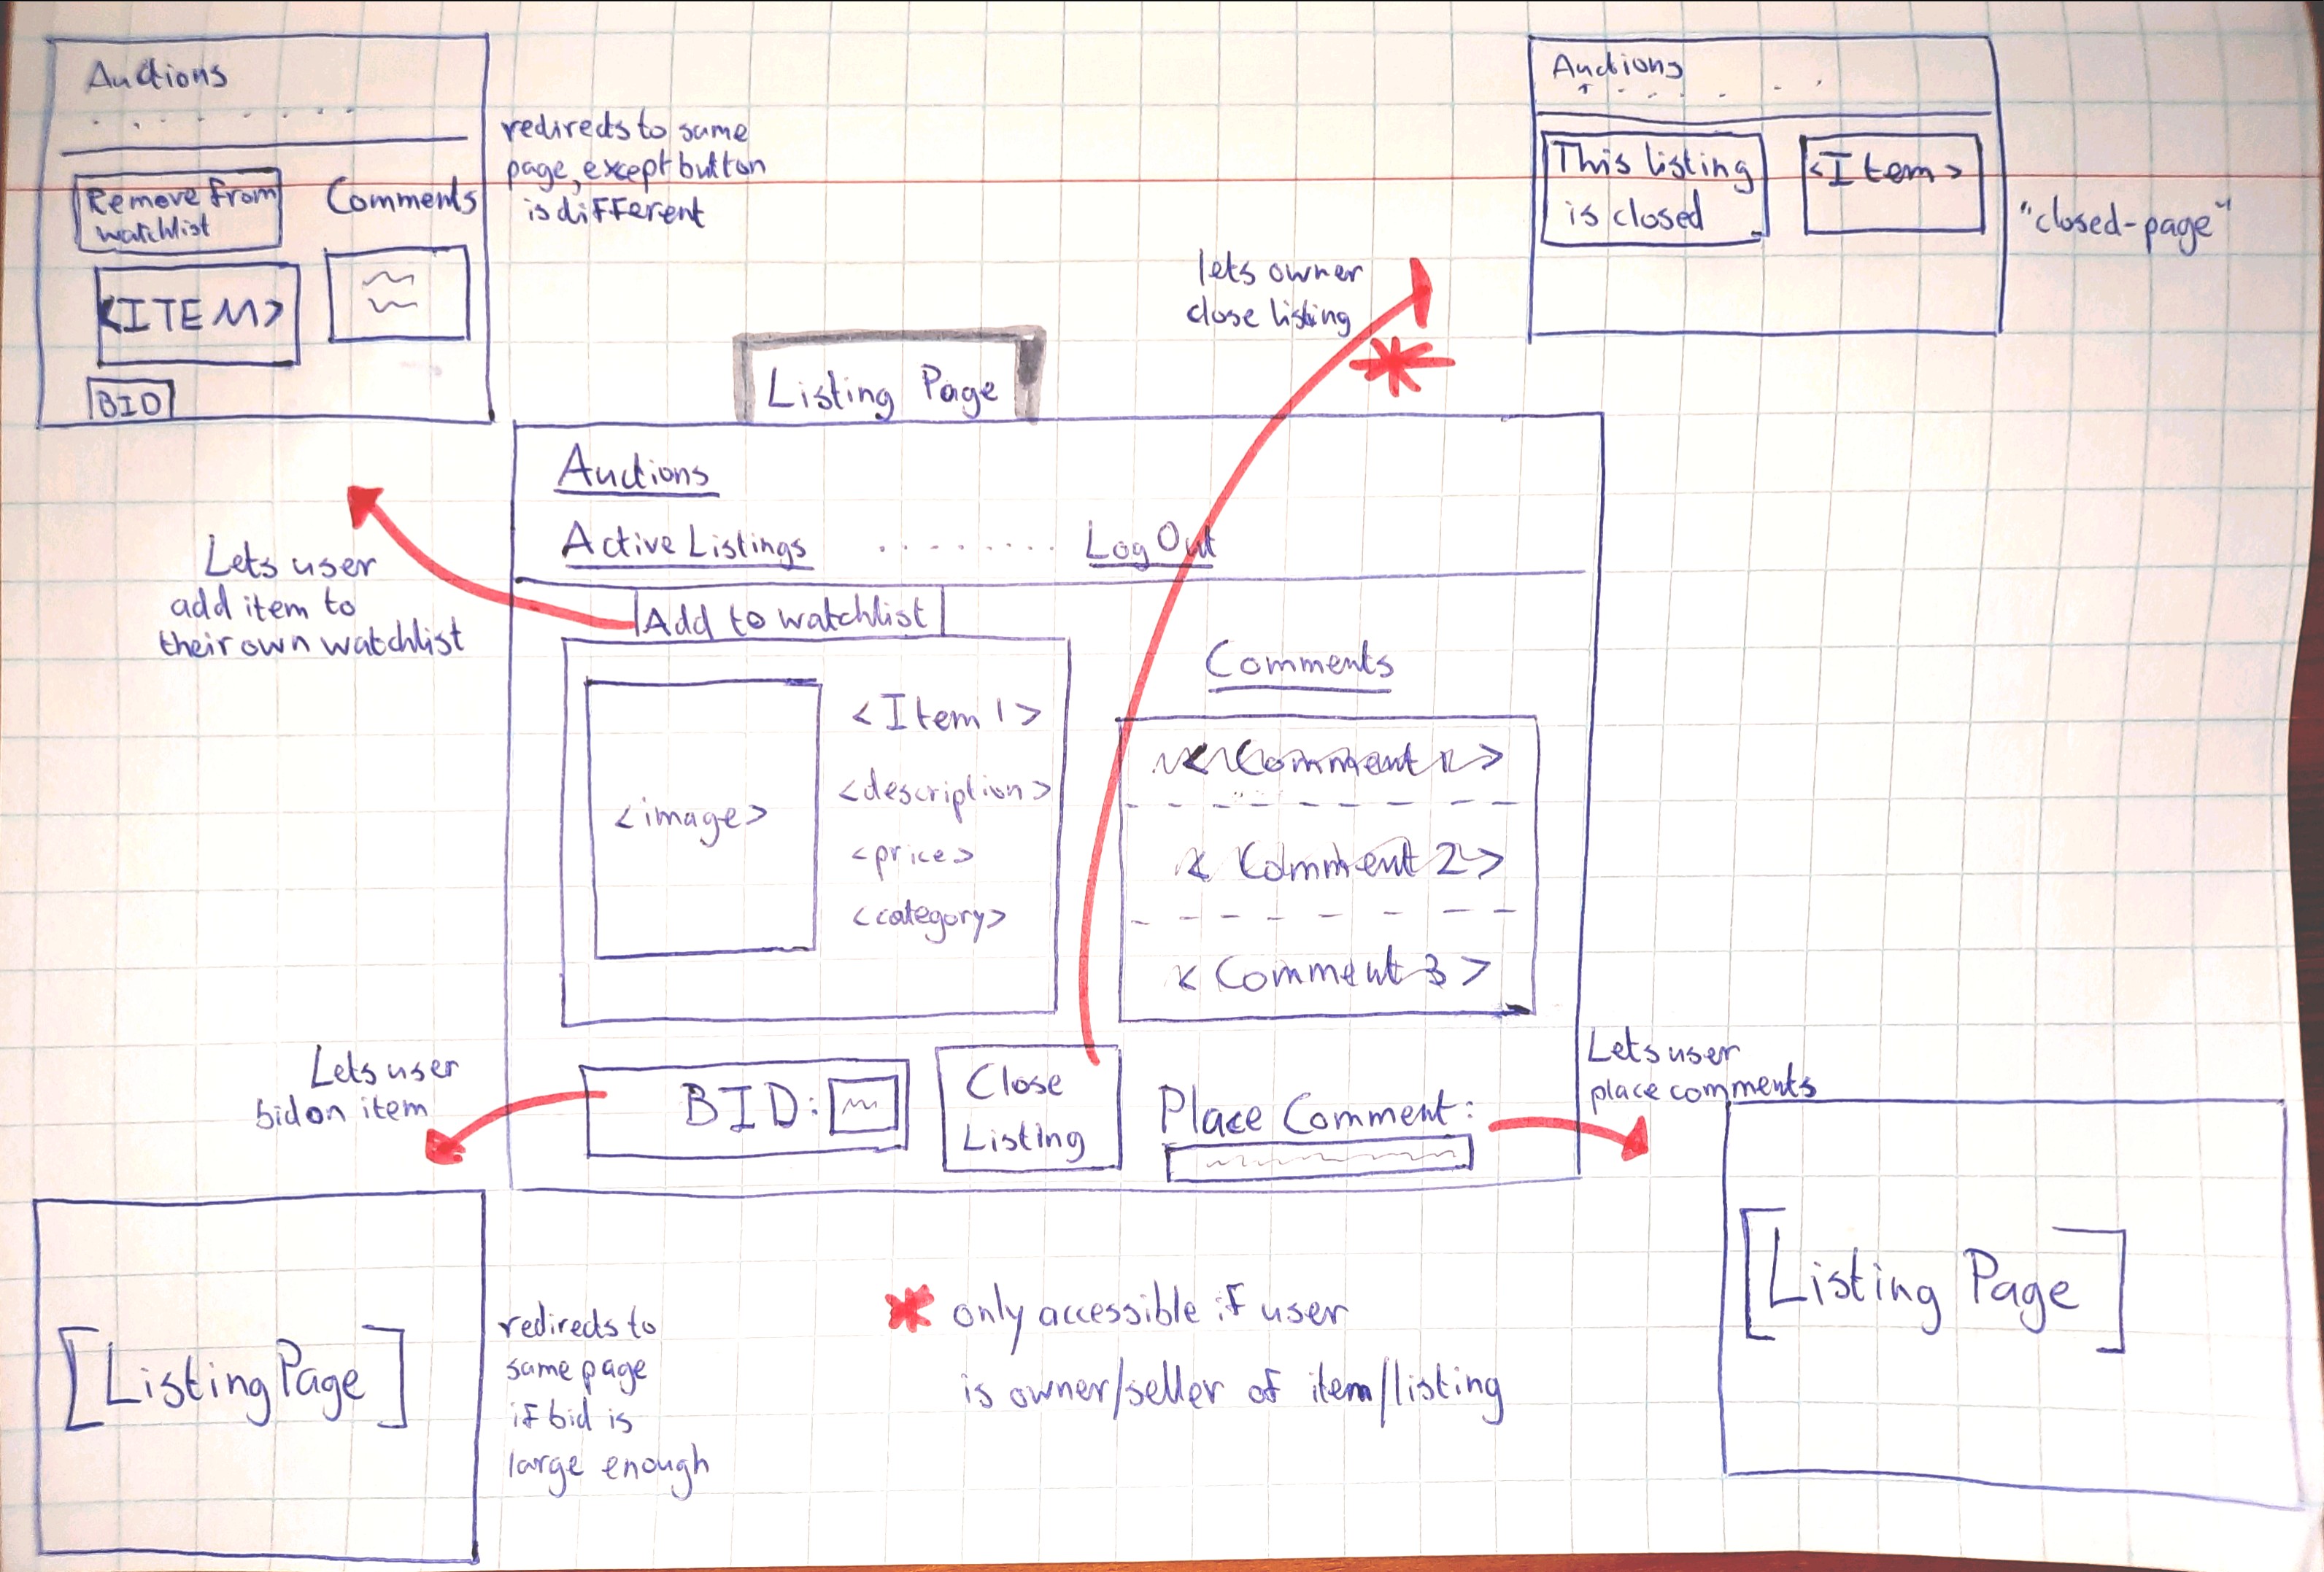 Auctions
Remove from
watchlist
Comments
<ITEM>
BID
redirects to same
page, except button
is different
Auctions
This listing
is closed
<Item>
"closed-page"
lets owner
close listing
*
Listing Page
Auctions
Active Listings ........ Log Out
Lets user
add item to
their own watchlist
Add to watchlist
<image>
<Item 1>
<description>
<price>
<category>
Comments
<Comment 1>
<Comment 2>
<Comment 3>
Lets user
bid on item
BID:
Close
Listing
Place Comment:
Lets user
place comments
[Listing Page]
redirects to
same page
if bid is
large enough
* only accessible if user
is owner/seller of item/listing
[Listing Page]